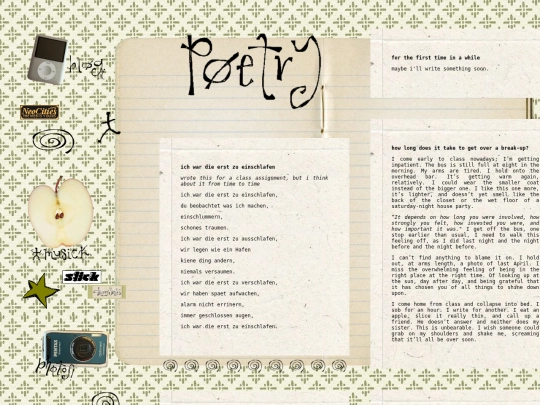 poetry
play
NeoCities
musick
slick
ich war die erst zu einschlafen
wrote this for a class assignment, but i think
about it from time to time
ich war die erst zu einschlafen,
du beobachtet was ich machen, .
einschlummern,
schones traumen.
ich war die erst zu ausschlafen,
wir legen wie ein Hafen
kiene ding anders,
niemals versaumen.
ich war die erst zu verschlafen,
wir haben spaet aufwachen,
alarm nicht errinern,
immer geschlossen augen,
ich war die erst zu einschlafen.
for the first time in a while
maybe i'll write something soon.
how long does it take to get over a break-up?
I come early to class nowadays; I'm getting
impatient. The bus is still full at eight in the
morning. My arms are tired. I hold onto the
overhead bar. It's getting warm again,
relatively. I could wear the smaller coat
instead of the bigger one. I like this one more,
it's lighter, and doesn't yet smell like the
back of the closet or the wet floor of a
saturday-night house party.
"It depends on how long you were involved, how
strongly you felt, how invested you were, and
how important it was." I get off the bus, one
stop earlier than usual. I need to walk this
feeling off, as I did last night and the night
before and the night before.
I can't find anything to blame it on. I hold
out, at arms length, a photo of last April. I
miss the overwhelming feeling of being in the
right place at the right time. Of looking up at
the sun, day after day, and being grateful that
it has chosen you of all things to shine down
upon.
I come home from class and collapse into bed. I
sob for an hour. I write for another. I eat an
apple, slice it really thin, and call up a
friend. He doesn't answer and neither does my
sister. This is unbearable. I wish someone could
grab on my shoulders and shake me, screaming
that it'll all be over soon.